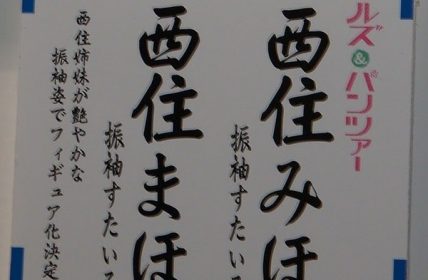 ルズ&パンツァー
西住みほ
振袖すたいる
西住まほ
振袖すたいる
西住姉妹が艶やかな
振袖姿でフィギュア化決定